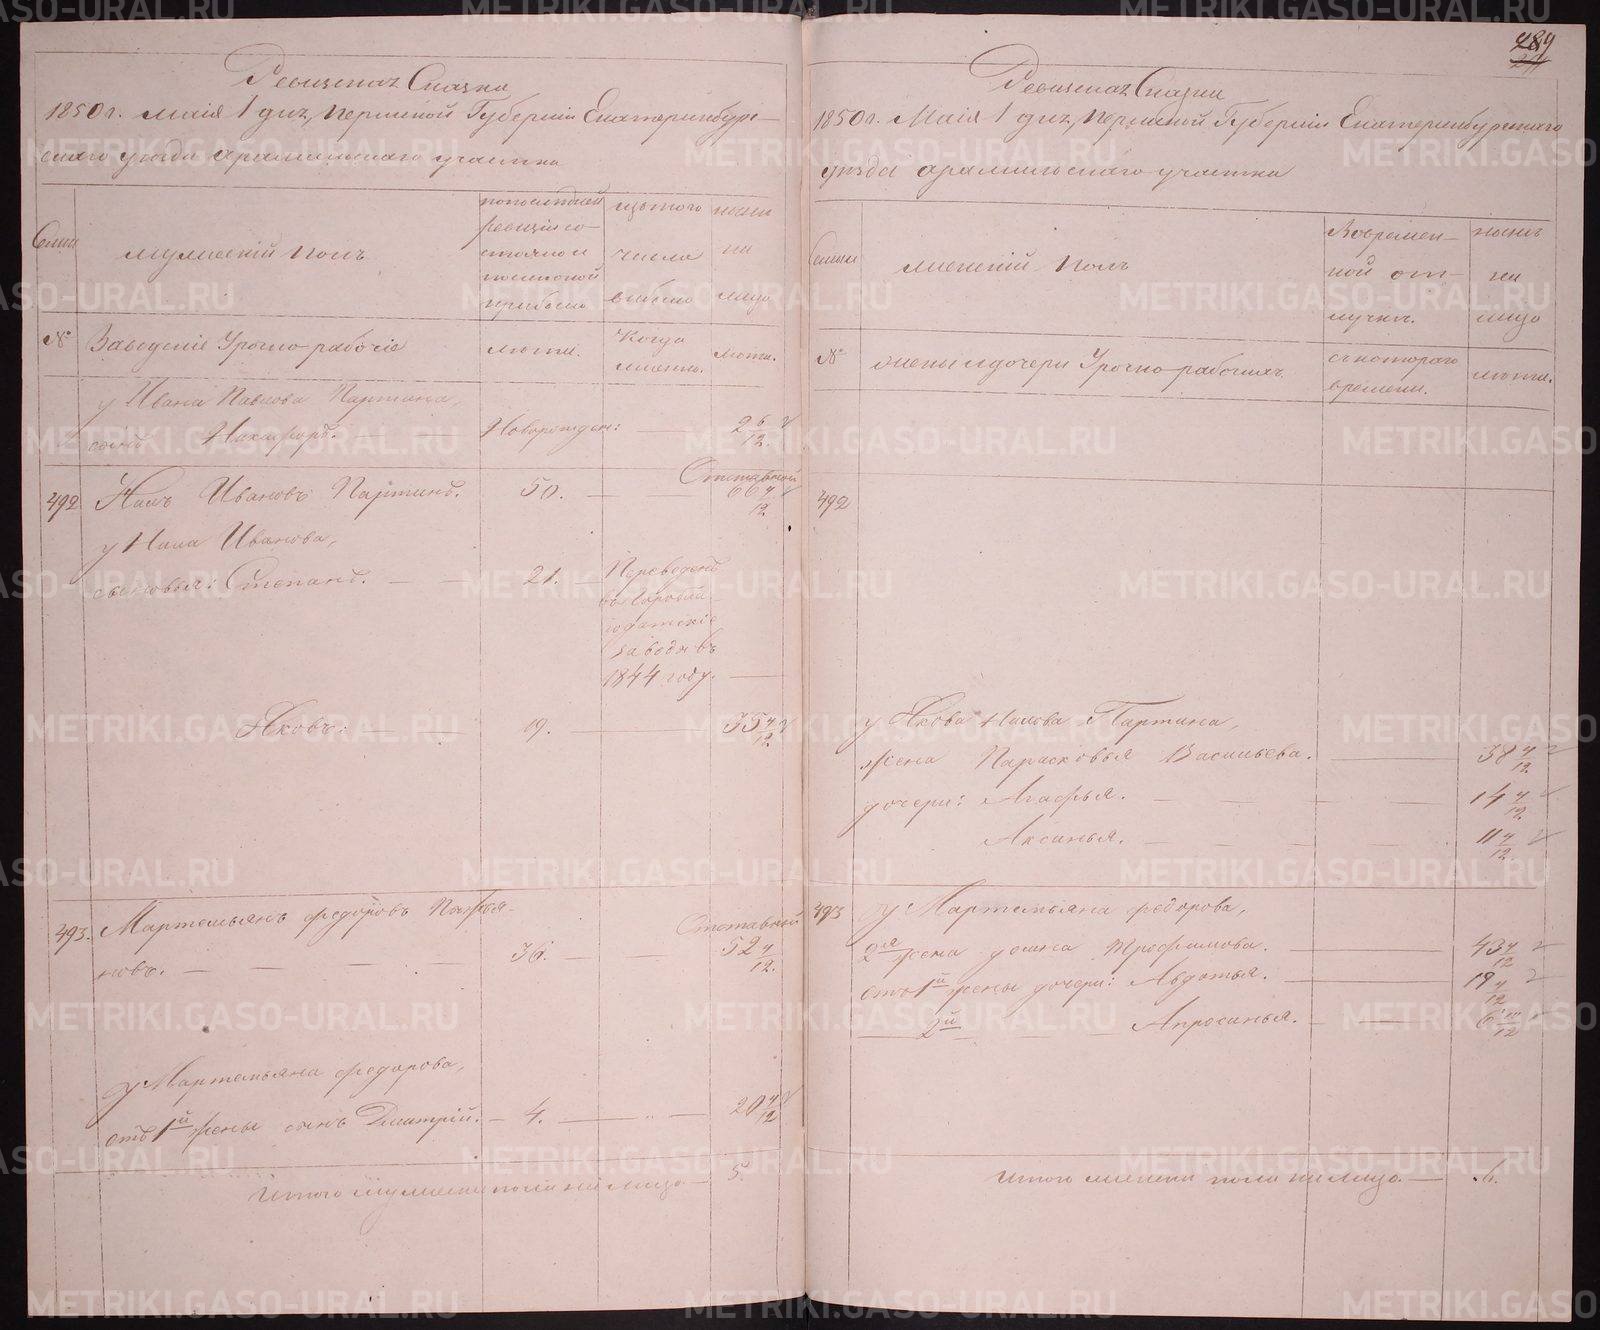 Ревизская Сказка
1850 г. Маія 1 дня, Пермской Губерніи Екатеринбург-
скаго уезда арамильскаго участка
Семьи
мужескій полъ
по последней ревизіи состояло и после оной прибыло
изъ того числа выбыло
ныне на лицо
№
Заводскіе Урочно-рабочіе
лета.
Когда именно.
лета.
у Ивана Павлова Партина,
сынъ Никифоръ. — —
Новорожден: —
2 6/12
492
Нилъ Ивановъ Партинъ.
50. —
Отставной
66 4/12
у Нила Иванова,
сыновья: Степанъ. — —
21. —
Переведенъ
въ Горобла-
годатскіе
заводы въ
1844 году. —
Яковъ: — —
19. —
35 4/12
493.
Мартемьянъ Федоровъ
новъ. — — —
36. — —
Отставной
52 4/12
у Мартемьяна Федорова,
отъ 1й жены сынъ Дмитрій. —
4. — —
20 4/12
Итого мужеска пола на лицо —
5.
489
Ревизская Сказка
1850 г. Маія 1 дня, Пермской Губерніи Екатеринбургскаго
уезда арамильскаго участка
Семьи
женскій полъ
Во времен-
ной от-
лучке.
ныне
на
лицо
№
жены и дочери Урочно-рабочихъ
съ котораго
времени.
лета.
492
у Якова Нилова Партина,
жена Парасковья Васильева. —
38 4/12
дочери: Агафья. — — — —
14 4/12
Аксинья. — — — —
11 4/12
493
у Мартемьяна Федорова,
2я жена Домна Трофимова. —
43 4/12
отъ 1й жены дочери: Авдотья. —
19 4/12
— 2й — — Апросинья. — —
6 11/12
Итого женска пола на лицо. —
6.
METRIKI.GASO-URAL.RU